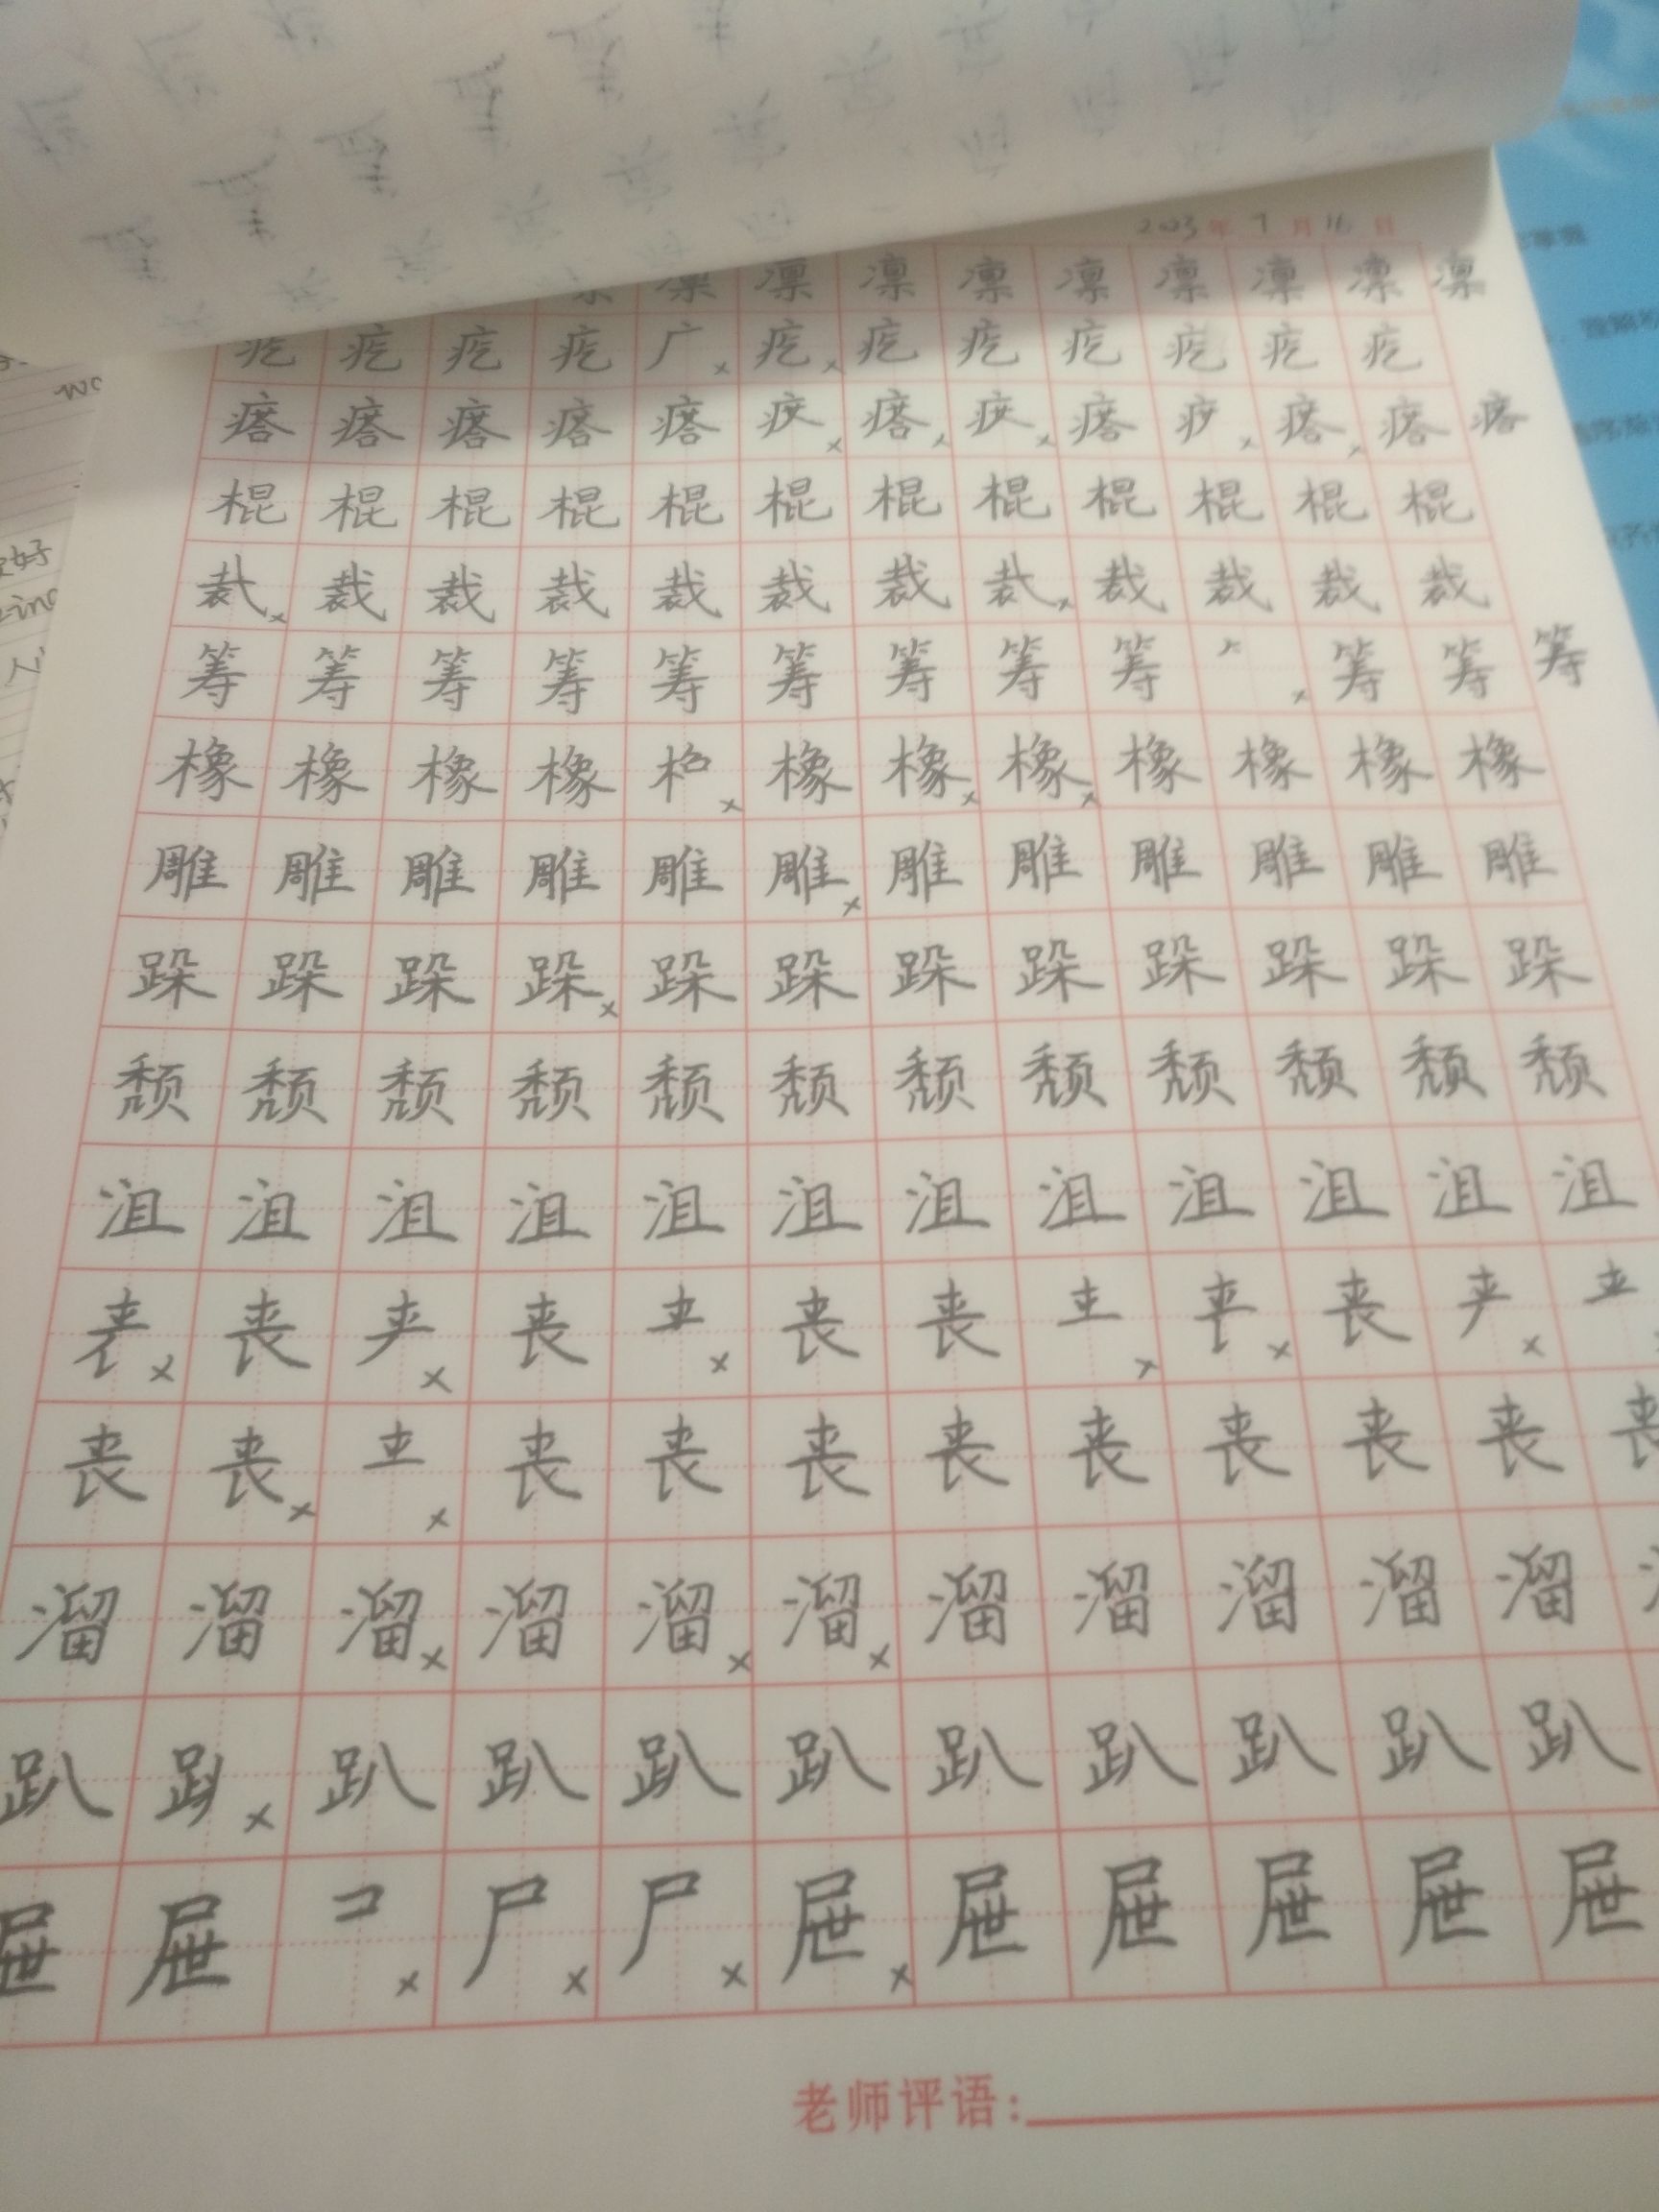 2023年7月16日
凛 凛 凛 凛 凛 凛 凛 凛 凛
疙 疙 疙 疙 疒 疙 疙 疙 疙 疙 疙 疙
瘩 瘩 瘩 瘩 瘩 瘩 瘩 瘩 瘩
棍 棍 棍 棍 棍 棍 棍 棍 棍 棍 棍 棍
裁 裁 裁 裁 裁 裁 裁 裁 裁 裁
筹 筹 筹 筹 筹 筹 筹 筹 筹 筹 筹 筹
橡 橡 橡 橡 橡 橡 橡 橡 橡 橡 橡
雕 雕 雕 雕 雕 雕 雕 雕 雕 雕 雕 雕
跺 跺 跺 跺 跺 跺 跺 跺 跺 跺 跺 跺
颓 颓 颓 颓 颓 颓 颓 颓 颓 颓 颓 颓
沮 沮 沮 沮 沮 沮 沮 沮 沮 沮 沮 沮
丧 丧 丧 丧 丧
丧 丧 丧 丧 丧 丧 丧 丧 丧 丧 丧
溜 溜 溜 溜 溜 溜 溜 溜 溜 溜 溜
趴 趴 趴 趴 趴 趴 趴 趴 趴 趴
屉 屉 尸 尸 屉 屉 屉 屉 屉 屉
老师评语: